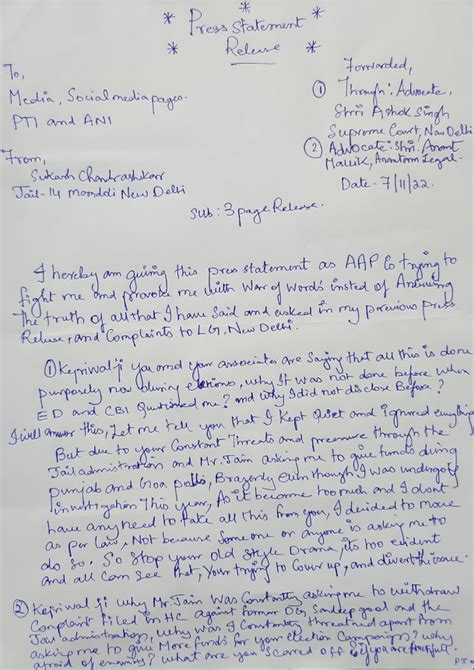 * Press Statement *
* Release *
To,
Media, Social media pages
PTI and ANI
Forwarded,
① Through: Advocate,
Shri Ashok Singh
Supreme Court, New Delhi
② Advocate: Shri. Anant
Malik, Anantam Legal.
Date - 7/11/22.
From,
Sukash Chandrashkar
Jail-14 Mandoli New Delhi
Sub: 3 page Release.
I hereby am giving this press statement as AAP & Co trying to
fight me and provoke me with War of Words insted of Answering
The truth of all that I have Said and asked in my previous press
Release, and Complaints to LG, New Delhi.
① Kejriwal ji you and your associates are Saying that all this is done
purposely now during elections, why It was not done before when
ED and CBI Questioned me? and why I did not disclose Before?
I will answer this, Let me tell you that I Kept Quiet and ignored everything
But due to your Constant Threats and pressure through the
Jail administration and Mr. Jain asking me to give funds during
punjab and Goa polls, Brazenly even though I was undergoing
investigation This year, As it became too much and I dont
have any need to take all this from you, I decided to move
as per law, Not because Someone or anyone is asking me to
do so. So Stop your Old Style Drama, its too evident
and all Can See that, Your trying to Cover up, and divert the issue.
② Kejriwal ji why Mr. Jain was Constantly asking me to withdraw
Complaint filed in HC against former DG Sandeep goel and the
Jail administration, why was I Constantly threatned apart from
asking me to give More funds for your Election Campaigns? why
afraid of enquiry? what are you Scared off if you are truthfull.